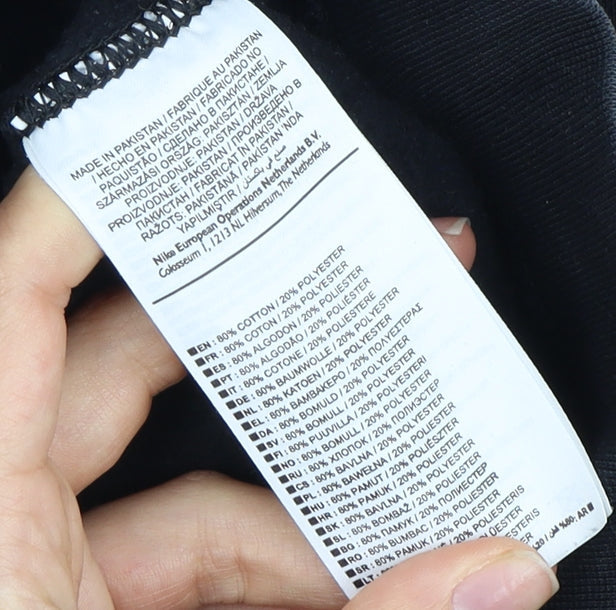 MADE IN PAKISTAN / FABRIQUE AU PAKISTAN
/ HECHO EN PAKISTAN / FABRICADO NO
PAQUISTÃO / СДЕЛАНО В ПАКИСТАНЕ /
SZÁRMAZÁSI ORSZÁG: PAKISZTÁN / ZEMLJA
PROIZVODNJE: PAKISTAN / DRŽAVA
PROIZVODNJE: PAKISTAN / ПРОИЗВЕДЕНО В
ПАКИСТАН / FABRICAT ÎN PAKISTAN /
RAŽOTS: PAKISTĀNĀ / PAKISTAN 'NDA
YAPILMIŞTIR / صنع في باكستان
Nike European Operations Netherlands B.V.
Colosseum 1, 1213 NL Hilversum, The Netherlands
■ EN : 80% COTTON / 20% POLYESTER
■ FR : 80% COTON / 20% POLYESTER
■ ES : 80% ALGODON / 20% POLIESTER
■ PT : 80% ALGODÃO / 20% POLIÉSTER
■ IT : 80% COTONE / 20% POLIESTERE
■ DE : 80% BAUMWOLLE / 20% POLYESTER
■ NL : 80% KATOEN / 20% POLYESTER
■ EL : 80% ΒΑΜΒΑΚΕΡΟ / 20% ΠΟΛΥΕΣΤΕΡΑΣ
■ DA : 80% BOMULD / 20% POLYESTER
■ SV : 80% BOMULL / 20% POLYESTER
■ FI : 80% PUUVILLA / 20% POLYESTERI
■ NO : 80% BOMULL / 20% POLYESTER
■ RU : 80% ХЛОПОК / 20% ПОЛИЭСТЕР
■ CS : 80% BAVLNA / 20% POLYESTER
■ PL : 80% BAWEŁNA / 20% POLIESTER
■ HU : 80% PAMUT / 20% POLIÉSZTER
■ HR : 80% PAMUK / 20% POLIESTER
■ SK : 80% BAVLNA / 20% POLYESTER
■ SL : 80% BOMBAŽ / 20% POLIESTER
■ BG : 80% ПАМУК / 20% ПОЛИЕСТЕР
■ RO : 80% BUMBAC / 20% POLIESTER
■ SR : 80% PAMUK / 20% POLIESTER
■ LT :